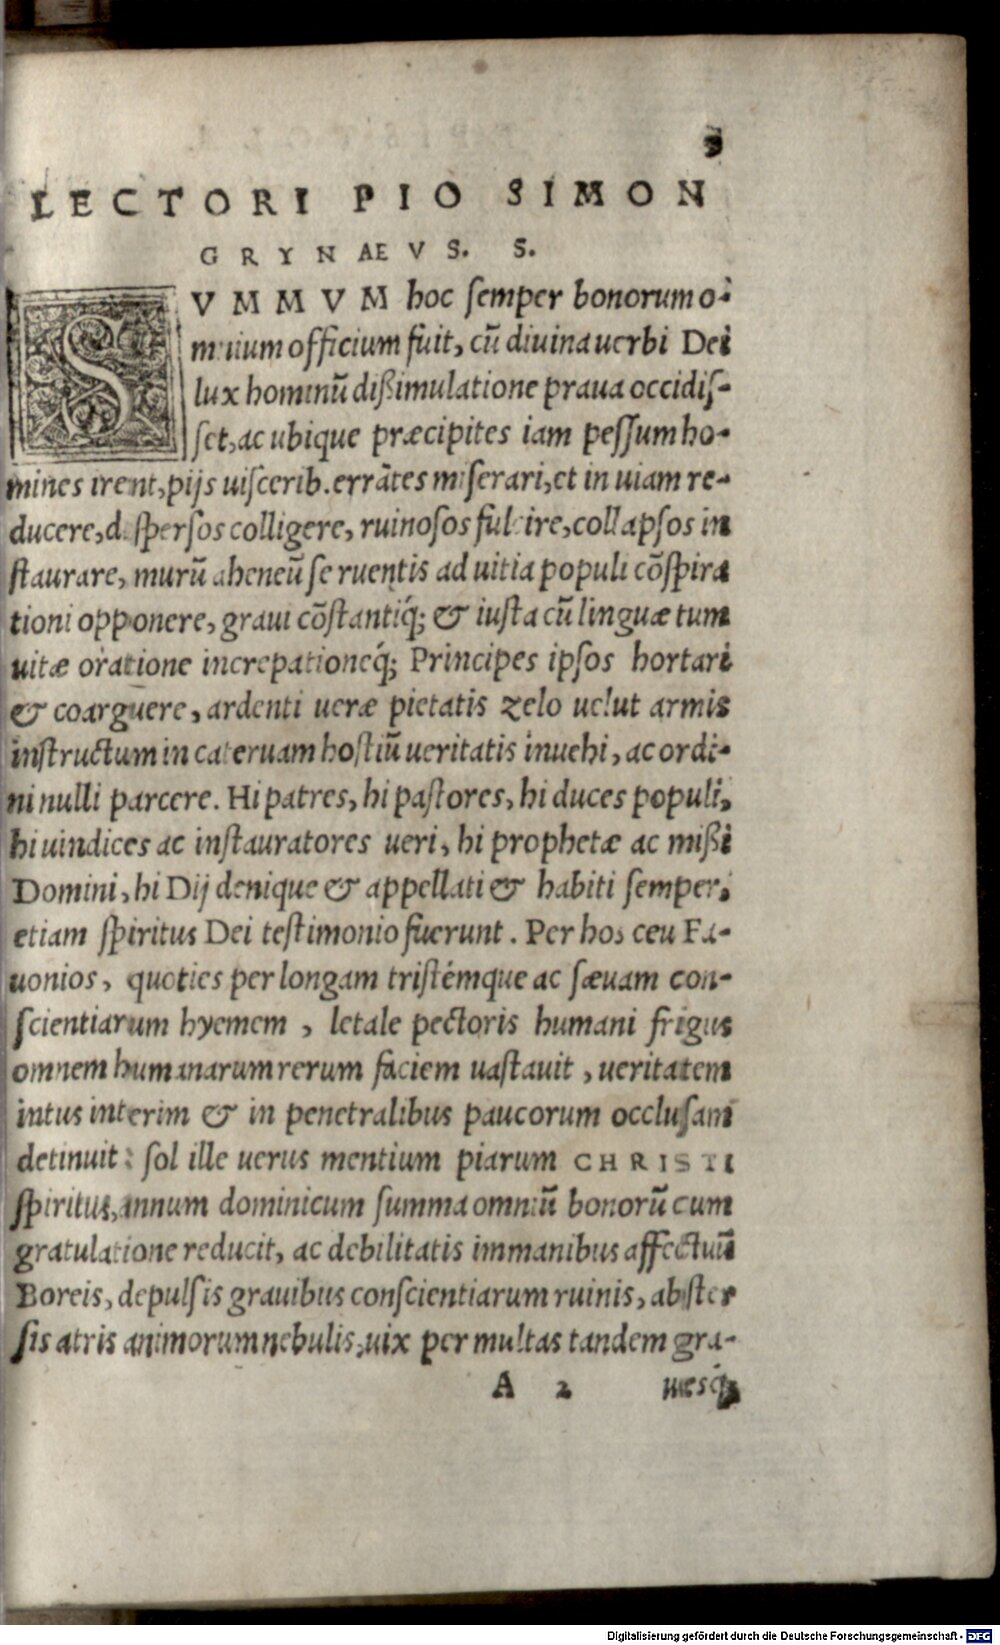 3
LECTORI PIO SIMON
GRYNAEVS. S.
SVMMVM hoc semper bonorum o-
mnium officium fuit, cū diuina uerbi Dei
lux hominū dißimulatione praua occidis-
set, ac ubique præcipites iam pessum ho-
mines irent, pijs uiscerib. errātes miserari, et in uiam re-
ducere, dispersos colligere, ruinosos fulcire, collapsos in
staurare, murū aheneū se ruentis ad uitia populi cōspira
tioni opponere, graui cōstantiq́; & iusta cū linguæ tum
uitæ oratione increpationeq́; Principes ipsos hortari
& coarguere, ardenti ueræ pietatis zelo uelut armis
instructum in cateruam hostiū ueritatis inuehi, ac ordi-
ni nulli parcere. Hi patres, hi pastores, hi duces populi,
hi uindices ac instauratores ueri, hi prophetæ ac mißi
Domini, hi Dij denique & appellati & habiti semper,
etiam spiritus Dei testimonio fuerunt. Per hos ceu Fa-
uonios, quoties per longam tristémque ac sæuam con-
scientiarum hyemem, letale pectoris humani frigus
omnem humanarum rerum faciem uastauit, ueritatem
intus interim & in penetralibus paucorum occlusam
detinuit: sol ille uerus mentium piarum CHRISTI
spiritus, annum dominicum summa omniū bonorū cum
gratulatione reducit, ac debilitatis immanibus affectuū
Boreis, depulsis grauibus conscientiarum ruinis, abster
sis atris animorum nebulis, uix per multas tandem gra-
A 2 uesq́;
Digitalisierung gefördert durch die Deutsche Forschungsgemeinschaft - DFG